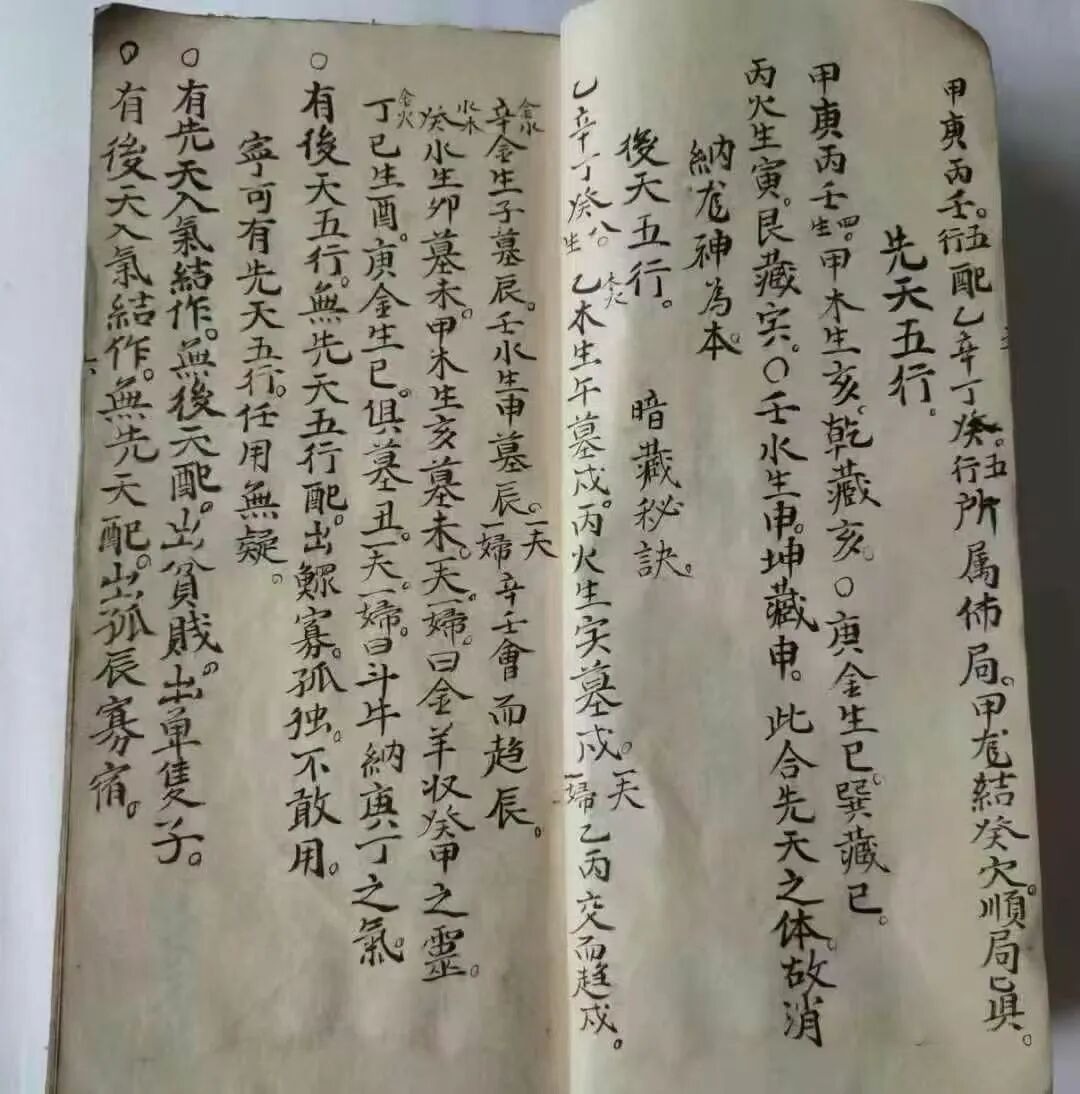 甲庚丙壬。五行配乙辛丁癸。五行所属佈局。甲龙結癸穴。順局已真。
先天五行。
甲庚丙壬四生。甲木生亥。乾藏亥。〇庚金生巳。巽藏巳。
丙火生寅。艮藏寅。〇壬水生申。坤藏申。此合先天之体。故消
納龙神為本。
後天五行。 暗藏秘訣。
乙辛丁癸八生。木火乙木生午墓戍。丙火生寅墓戍。一夫一婦乙丙交而趋戍。
金水辛金生子墓辰。壬水生申墓辰。一夫一婦辛壬會而趋辰。
水木癸水生卯墓未。甲木生亥墓未。一夫一婦。曰金羊収癸甲之靈。
金火丁巳生酉。庚金生巳。俱墓丑。一夫一婦。曰斗牛納庚丁之氣。
〇有後天五行。無先天五行配。出鰥寡。孤独。不敢用。
寕可有先天五行。任用無疑。
〇有先天入氣結作。無後天配。出貧賎。出单隻子。
〇有後天入氣結作。無先天配。出孤辰寡宿。